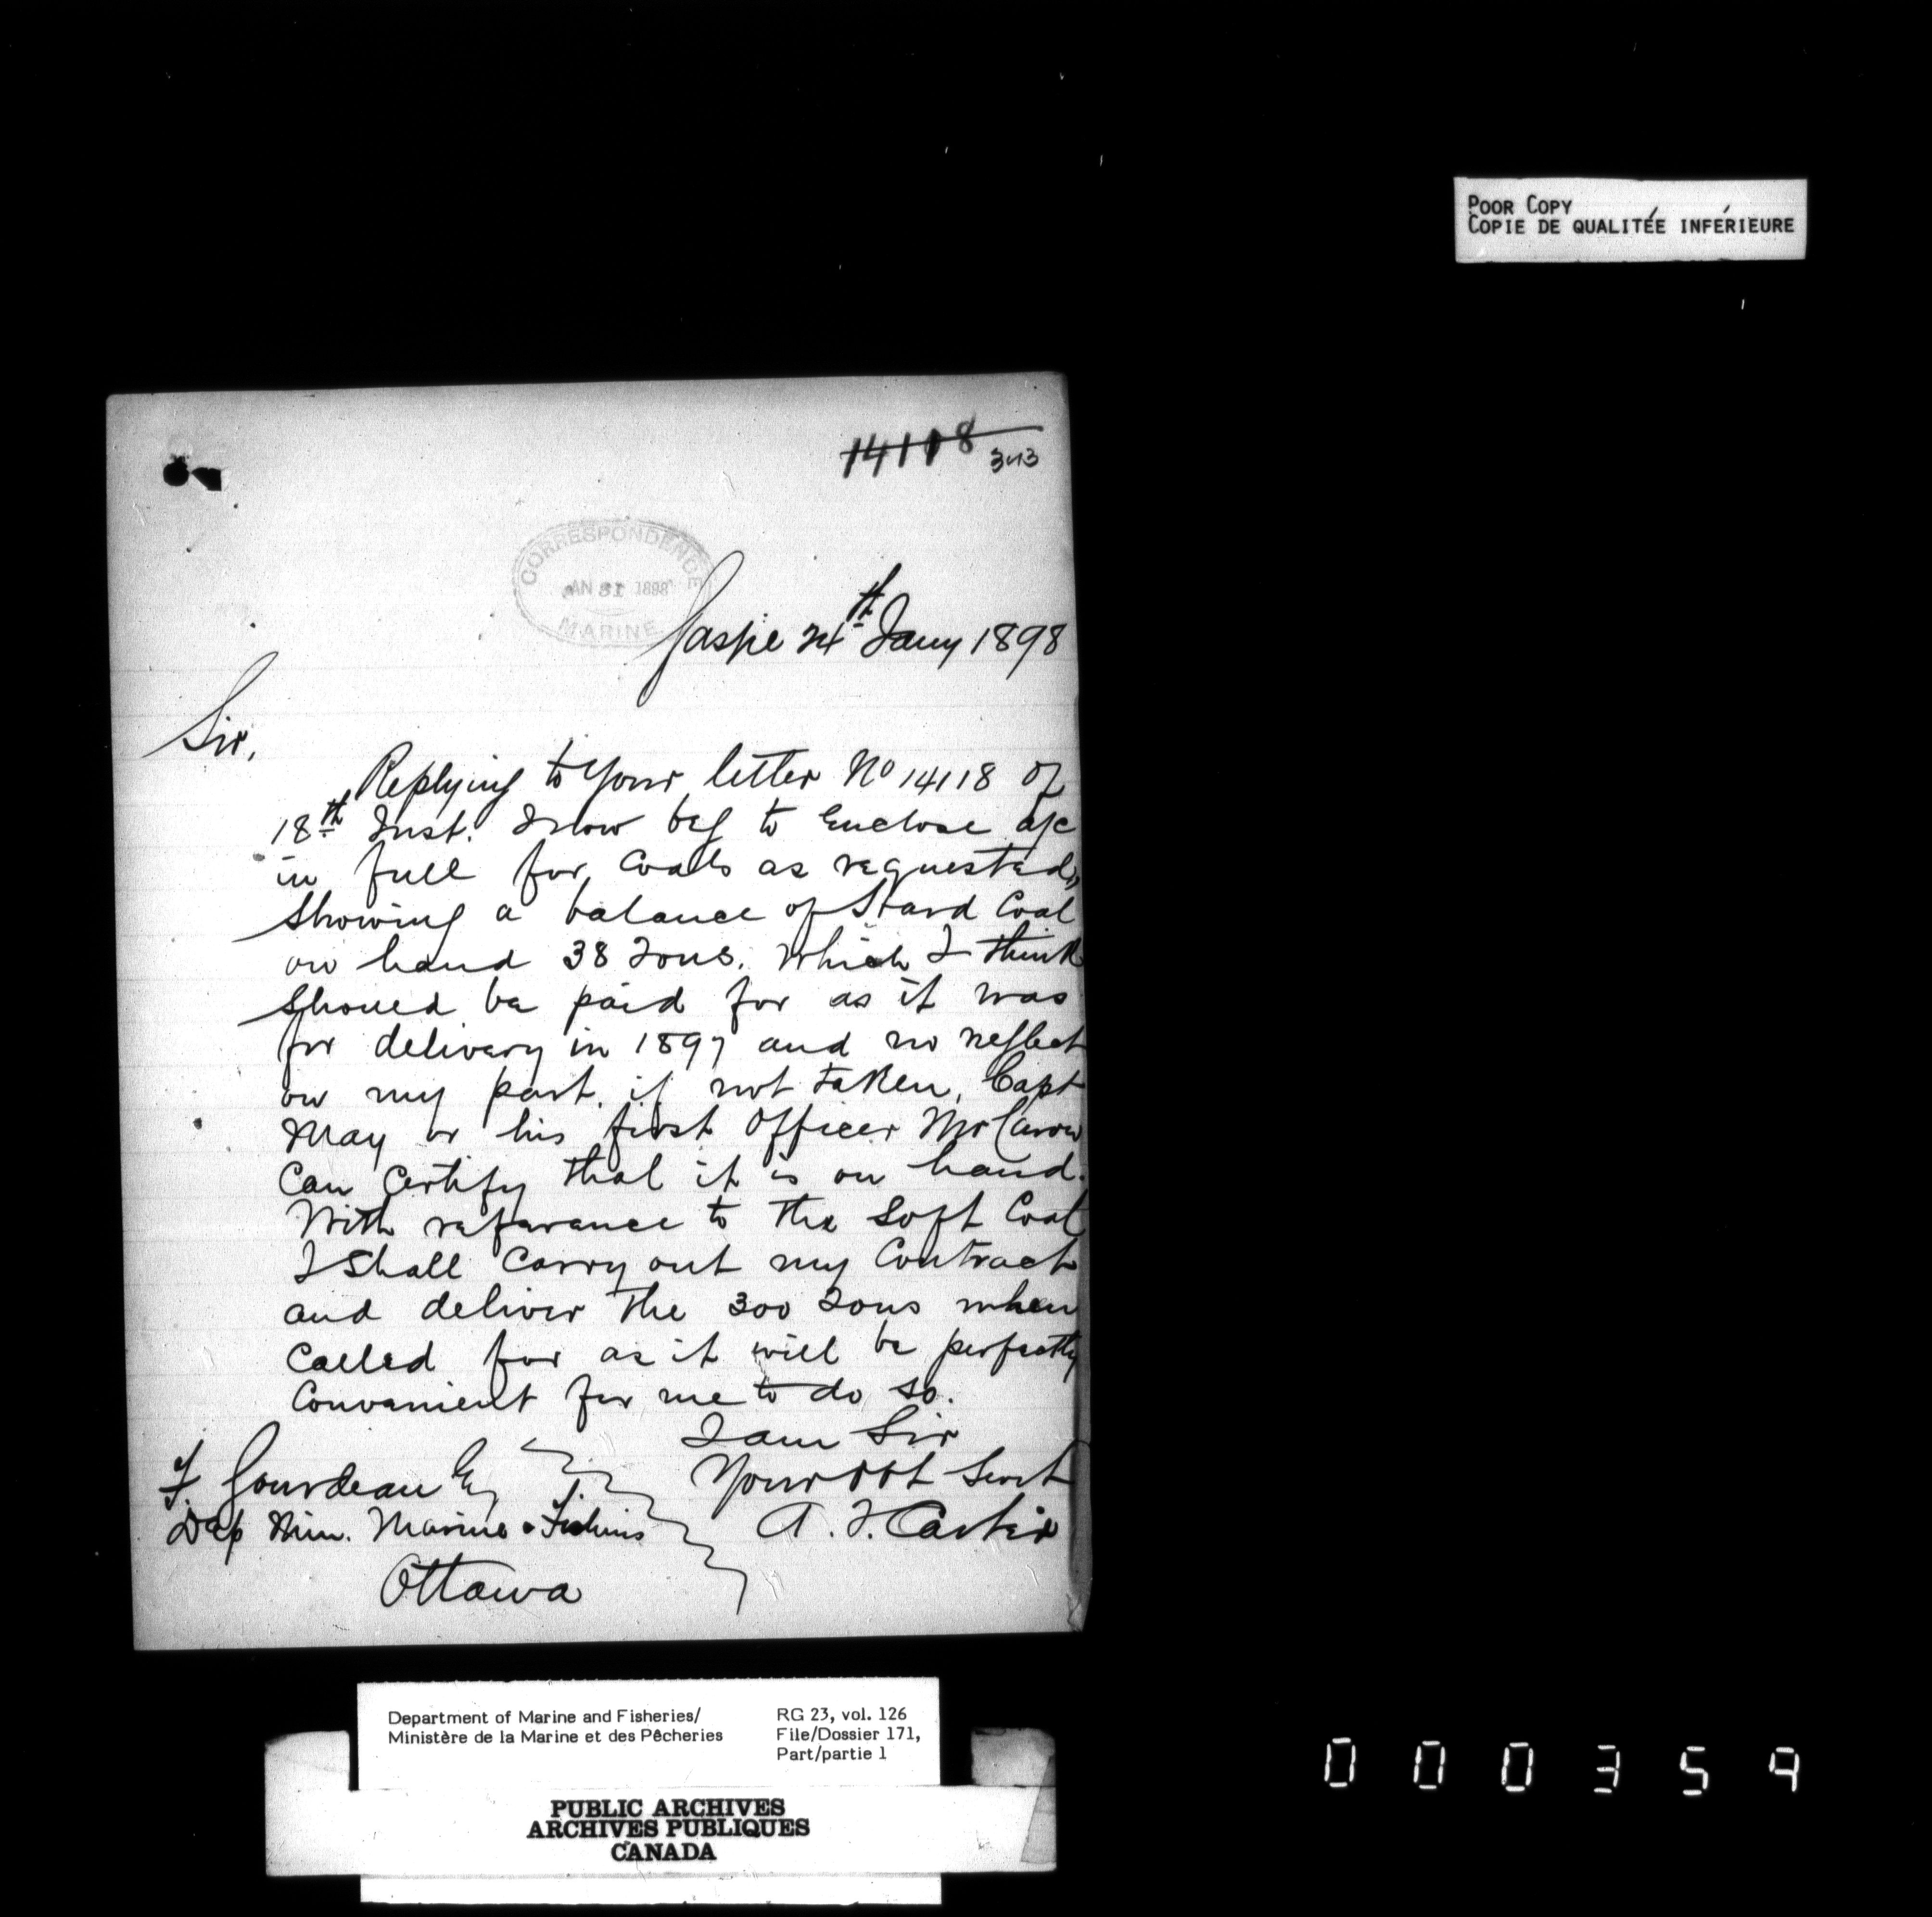 POOR COPY
COPIE DE QUALITÉE INFÉRIEURE
14118
CORRESPONDENCE
JAN 31 1898
MARINE
Gaspe 24th Jany 1898
Sir,
Replying to your letter No 14118 of
18th Inst. I now beg to Enclose a/c
in full for Coals as requested,
Showing a balance of Hard Coal
on hand 38 Tons. Which I think
Should be paid for as it was
for delivery in 1897 and no neglect
on my part if not taken, Capt
May or his first Officer Mr
Can Certify that it is on hand.
With referance to the Soft Coal
I Shall Carry out my Contract
and deliver the 300 Tons when
Called for as it will be perfectly
Convenient for me to do so.
I am Sir
Your Obt Servt
F. Gourdeau Esq
Dep Min. Marine & Fisheries
A. J. Carter
Ottawa
Department of Marine and Fisheries/
Ministère de la Marine et des Pêcheries
RG 23, vol. 126
File/Dossier 171,
Part/partie 1
PUBLIC ARCHIVES
ARCHIVES PUBLIQUES
CANADA
000359